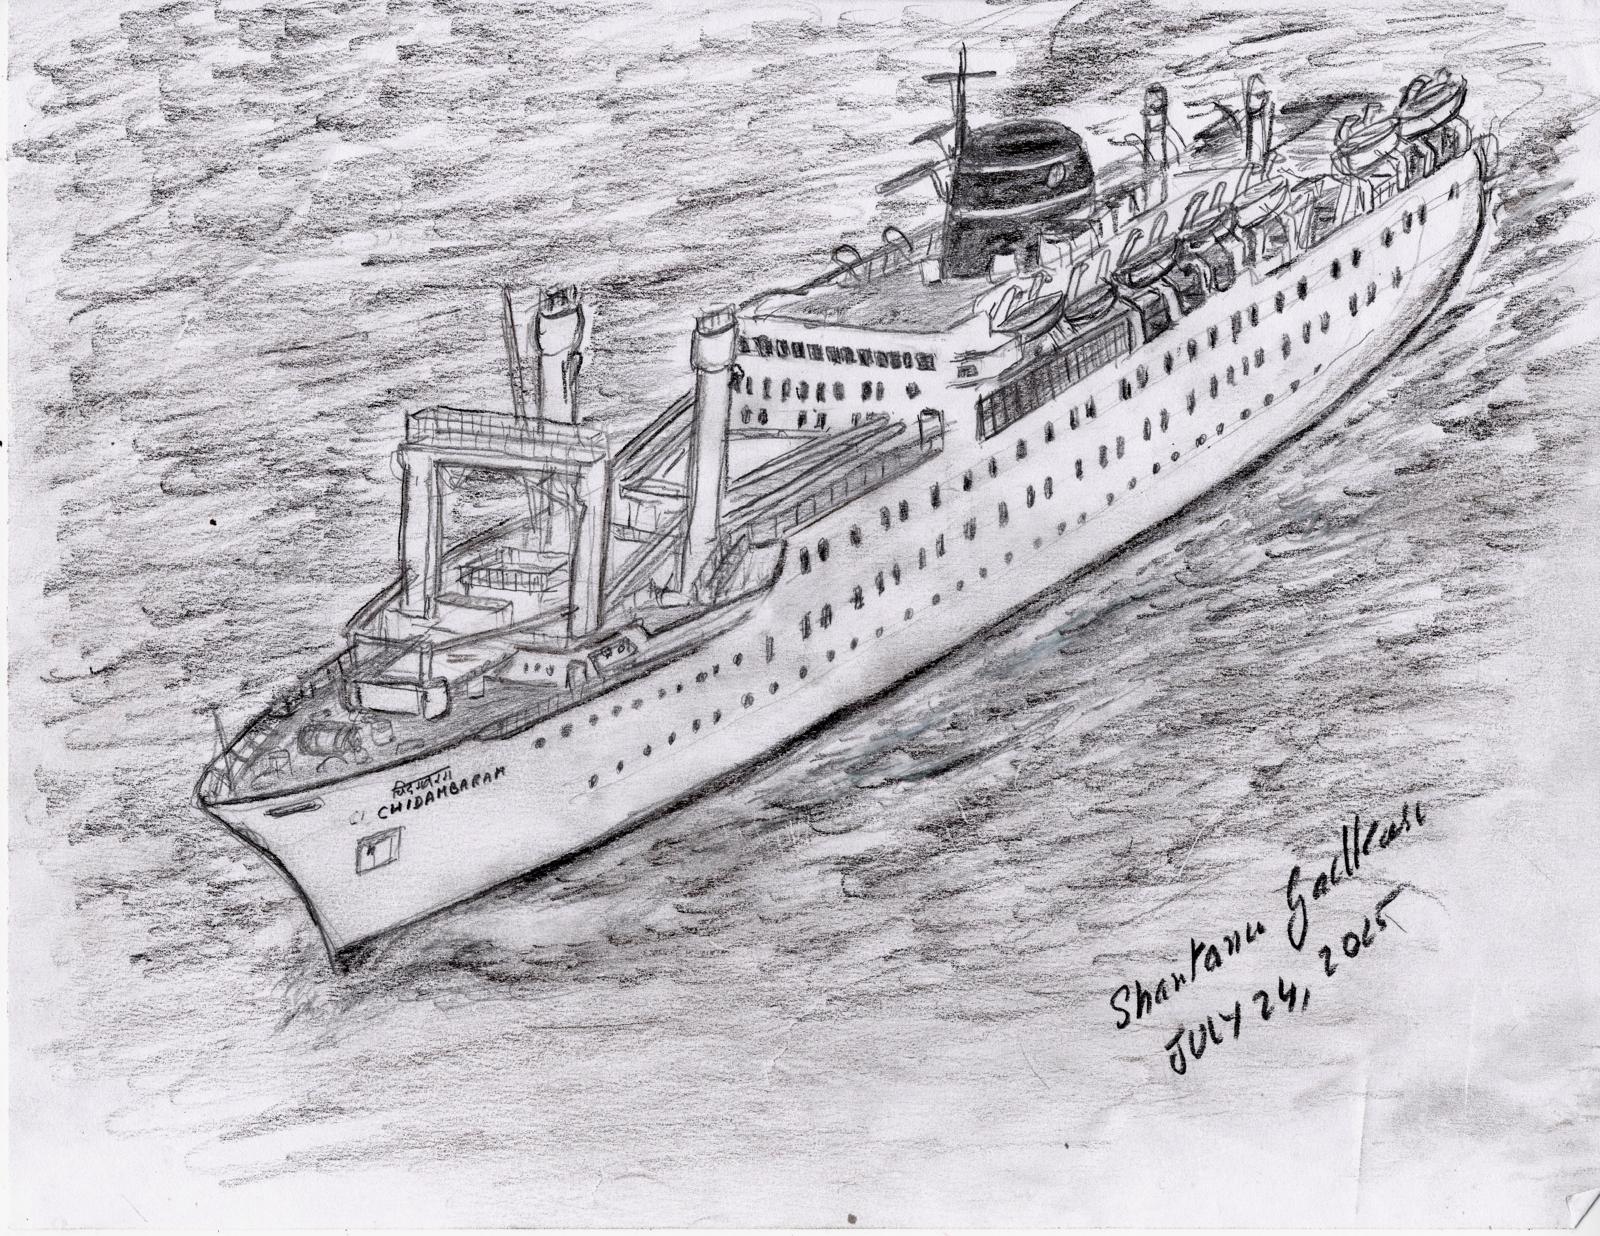 चिदम्बरम
CHIDAMBARAM
Shantanu Gadkari
JULY 24, 2025